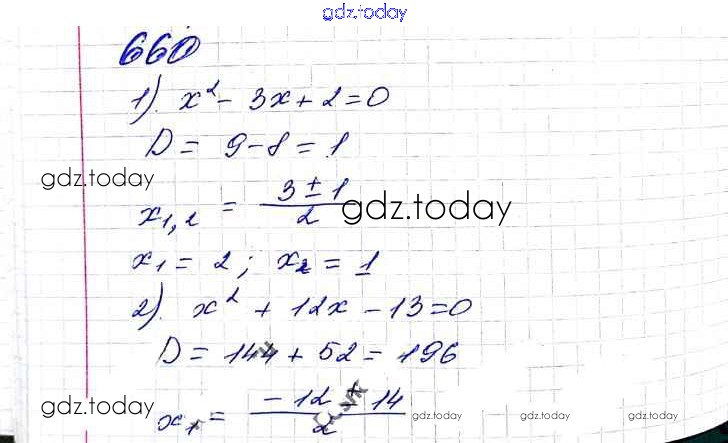 gdz.today
660
1). x² - 3x + 2 = 0
D = 9 - 8 = 1
gdz.today
x₁,₂ = (3 ± 1)/2
gdz.today
x₁ = 2; x₂ = 1
2). x² + 12x - 13 = 0
D = 144 + 52 = 196
x₁ = (-12 + 14)/2
gdz.today
gdz.today
gdz.today
gdz.today